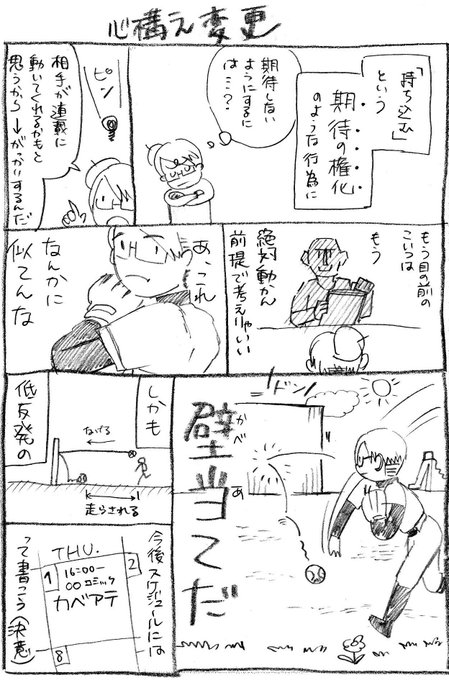 心構え変更
「持ち込む」
という
期待の権化
のような行為に
期待しない
ようにするに
は…?
ピン
相手が連載に
動いてくれるかもと
思うから→がっかりするんだ
もう目の前の
こいつは
もう
絶対動かん
前提で考えりゃいい
あ、これ
なんかに
似てんな
ドン
壁当てだ
かべあ
しかも
なげる
走らされる
低反発の
今後スケジュールには
THU.
1
2
16:00ー
○○コミック
カベアテ
8
って書こう(決意)